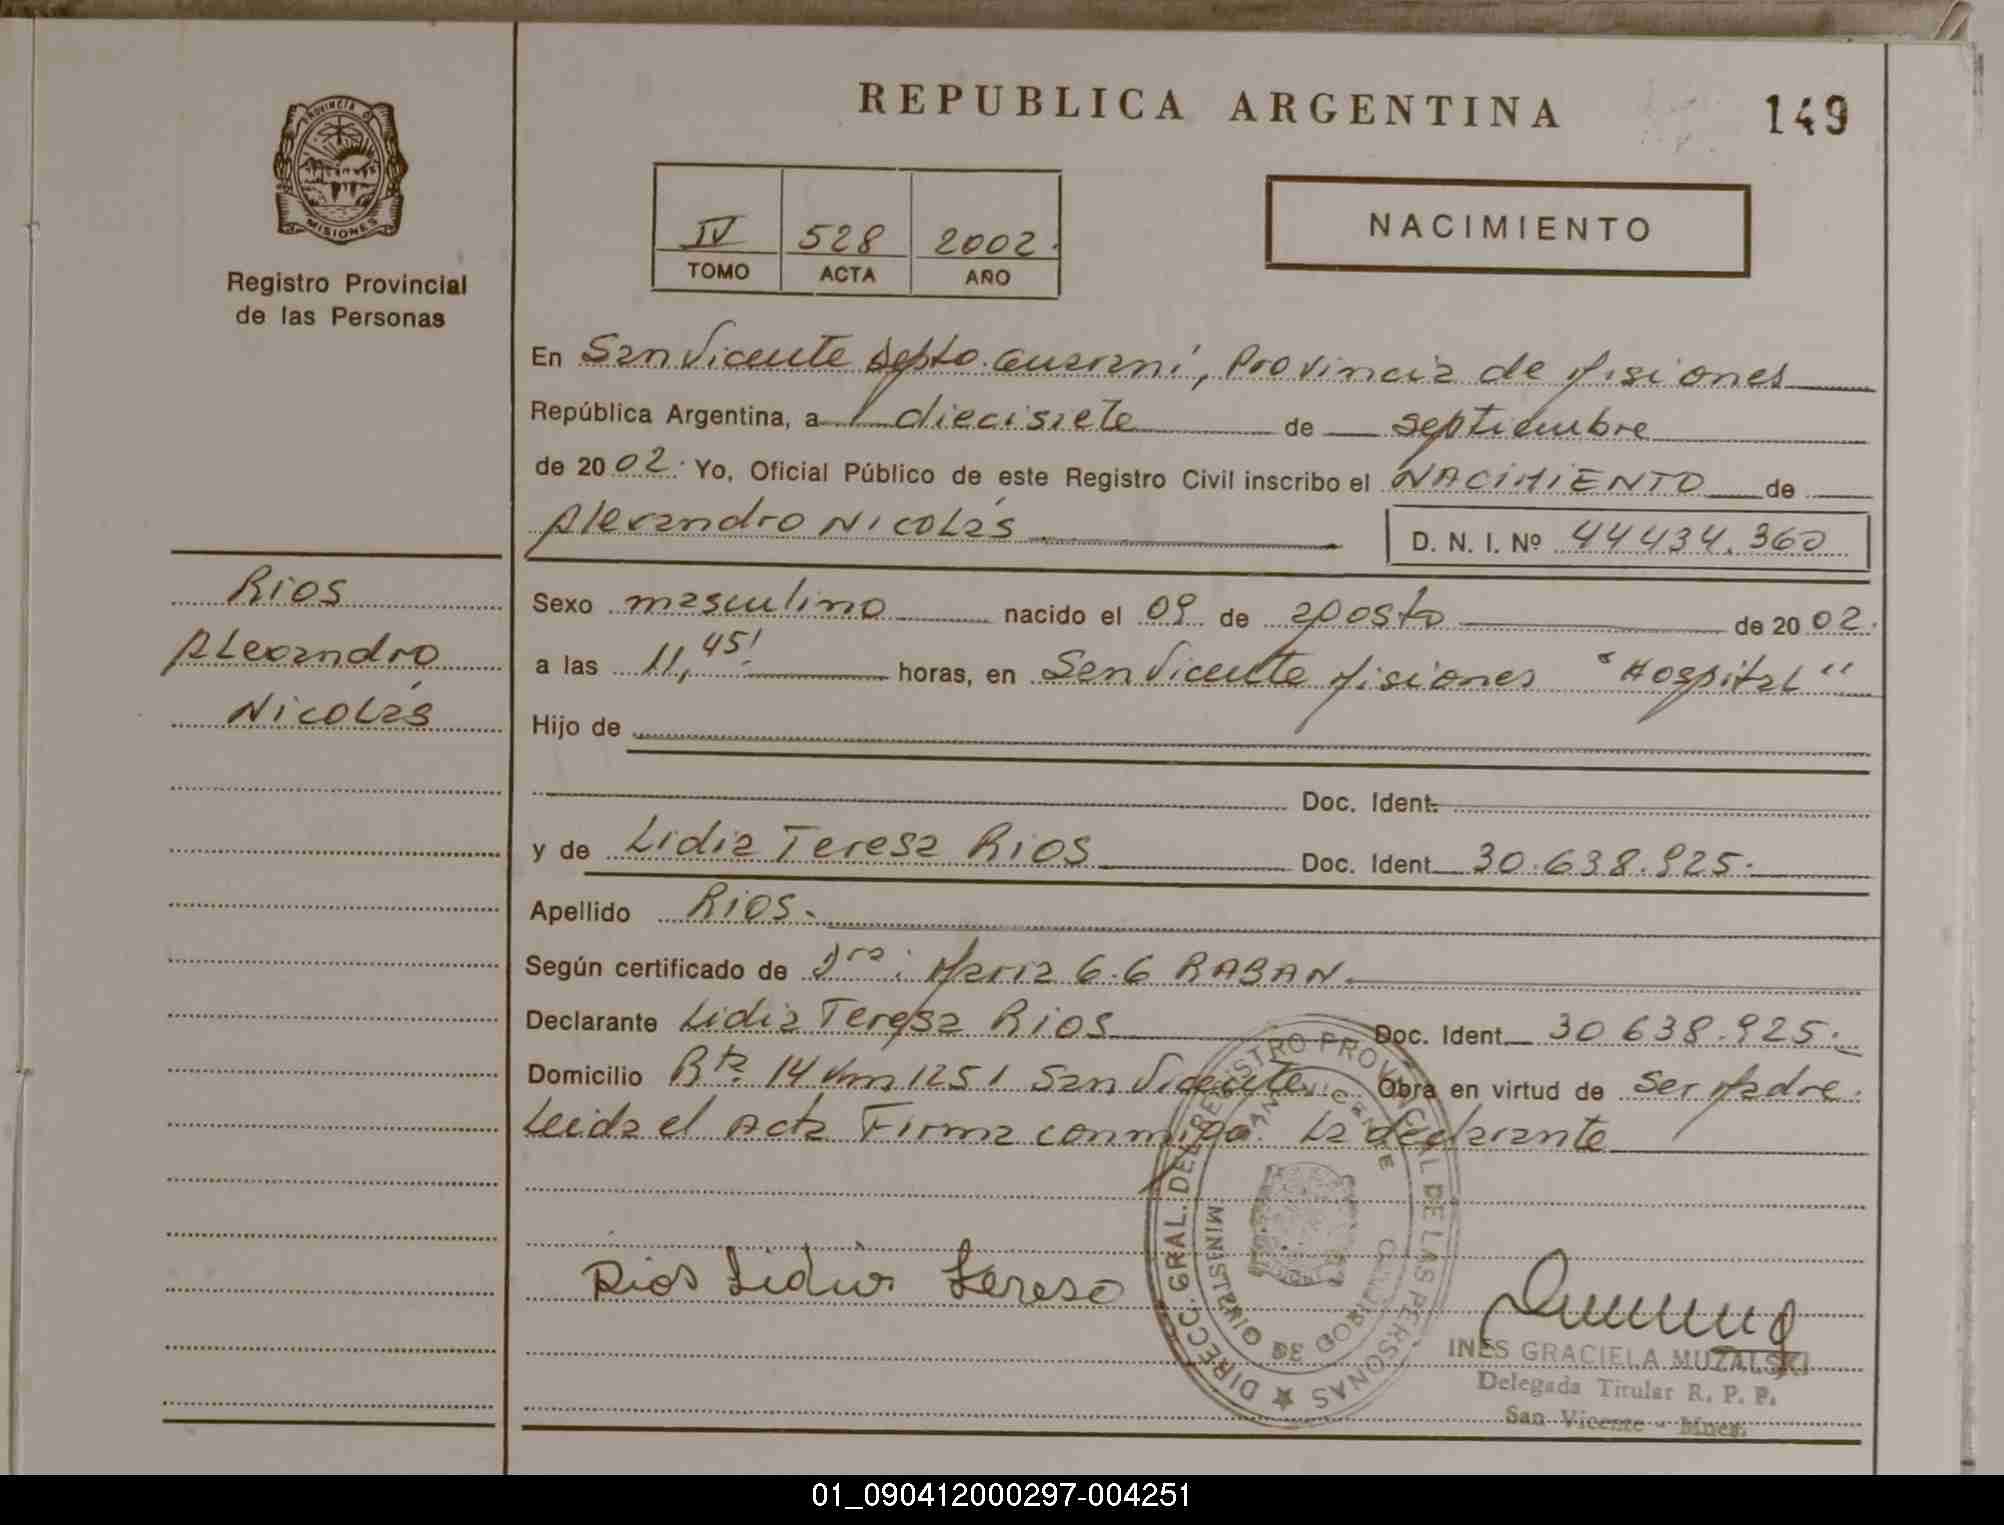 REPUBLICA ARGENTINA
149
PROVINCIA D
MISIONES
Registro Provincial
de las Personas
IV 528 2002.
TOMO ACTA AÑO
NACIMIENTO
En San Vicente Depto. Guaraní, Provincia de Misiones
República Argentina, a diecisiete de septiembre
de 20 02. Yo, Oficial Público de este Registro Civil inscribo el NACIMIENTO de
Alexandro Nicolás
D. N. I. Nº 44434.360
Rios
Alexandro
Nicolás
Sexo masculino nacido el 09 de agosto de 20 02.
a las 11,45' horas, en San Vicente Misiones "Hospital"
Hijo de
Doc. Ident.
y de Lidia Teresa Rios Doc. Ident. 30.638.925.
Apellido Rios.
Según certificado de Dra: Maria G.G RABAN
Declarante Lidia Teresa Rios Doc. Ident. 30 638.925.
Domicilio Rta. 14 km 1251 San Vicente. Obra en virtud de ser Madre.
Leida el Acta Firma conmigo. La declarante
Rios Lidia Teresa
DIRECC. GRAL. DEL REGISTRO PROVINCIAL DE LAS PERSONAS
SAN VICENTE
MINISTERIO DE GOBIERNO
INES GRACIELA MUZALSKI
Delegada Titular R. P. P.
San Vicente - Mnes.
01_090412000297-004251